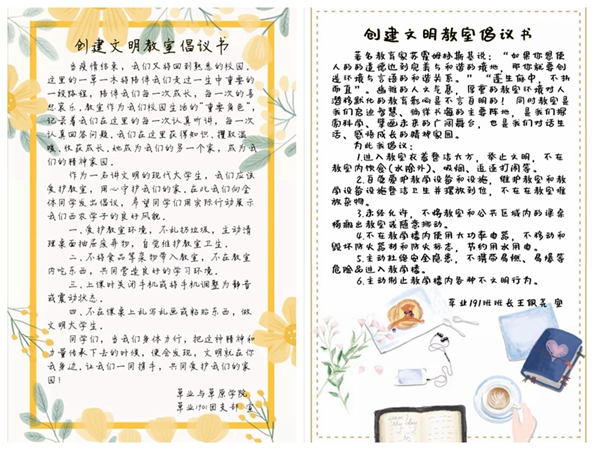 创建文明教室倡议书
当疫情结束,我们又将回到熟悉的校园。
这里的一草一木将陪伴我们走过一生中重要的
一段路程,陪伴我们每一次成长,每一次的喜
怒哀乐,教室作为我们校园生活的“重要角色”,
记录着们在这里的每一次认真听讲,每一次
认真回答问题,我们在这里获得知识,摄取温
暖,收获成长,她成为我们的另一个家,成为我
们的精神家园。
作为一名讲文明的现代大学生,我们应该
爱护教室,用心守护我们的家,在此我们向全
体同学发出倡议,希望同学们用实际行动展示
我们西农学子的良好风貌。
一、爱护教室环境,不乱扔垃圾,主动清
理桌面抽屉废弃物,自觉维护教室卫生。
二、不将食品等菜物带入教室,不在教室
内吃东西,共同营造良好的学习环境。
三、上课时关闭手机或将手机调整为静音
或震动状态。
四、不在课桌上乱写乱画或粘贴东西,做
文明大学生。
同学们,当我们身体力行,把这种精神和
力量传承下去的时候,便会发现,文明就在你
我身边,让我们一同携手,共同爱护我们的家
园!
草业与草原学院
草业1901团支部 宣
创建文明教室倡议书
著名教育家苏霍姆林斯基说:“如果你想使
人的的道德达到完美与和谐的境地,那你就要创
造环境与言语的和谐关系。”“蓬生麻中,不扶
而直”。幽雅的人文气息,厚重的教室环境对人
潜移默化的教育影响是不言自明的!同时教室是
我们启迪智慧、徜徉书海的主要阵地,是我们探
索科学、擘画未来的广阔舞台,也是我们对话生
活、感悟成长的精神家园。
为此我倡议:
1.进入教室衣着整洁大方,举止文明,不在
教室内饮食(水除外)、吸烟、追逐打闹等。
2.自觉爱护教学设备和设施,维护教室和教
学设备设施整洁卫生并摆放到位,不在教室堆
放杂物。
3.未经允许,不将教室和公共区域内的课桌
椅搬出教室或随意挪动。
4.不在教学楼内使用大功率电器,不移动和
毁坏防火器材和防火标志,节约用水用电。
5.主动杜绝安全隐患,不携带易燃、易爆等
危险品进入教学楼。
6.主动制止教学楼内各种不文明行为。
草业191班班长王 宣